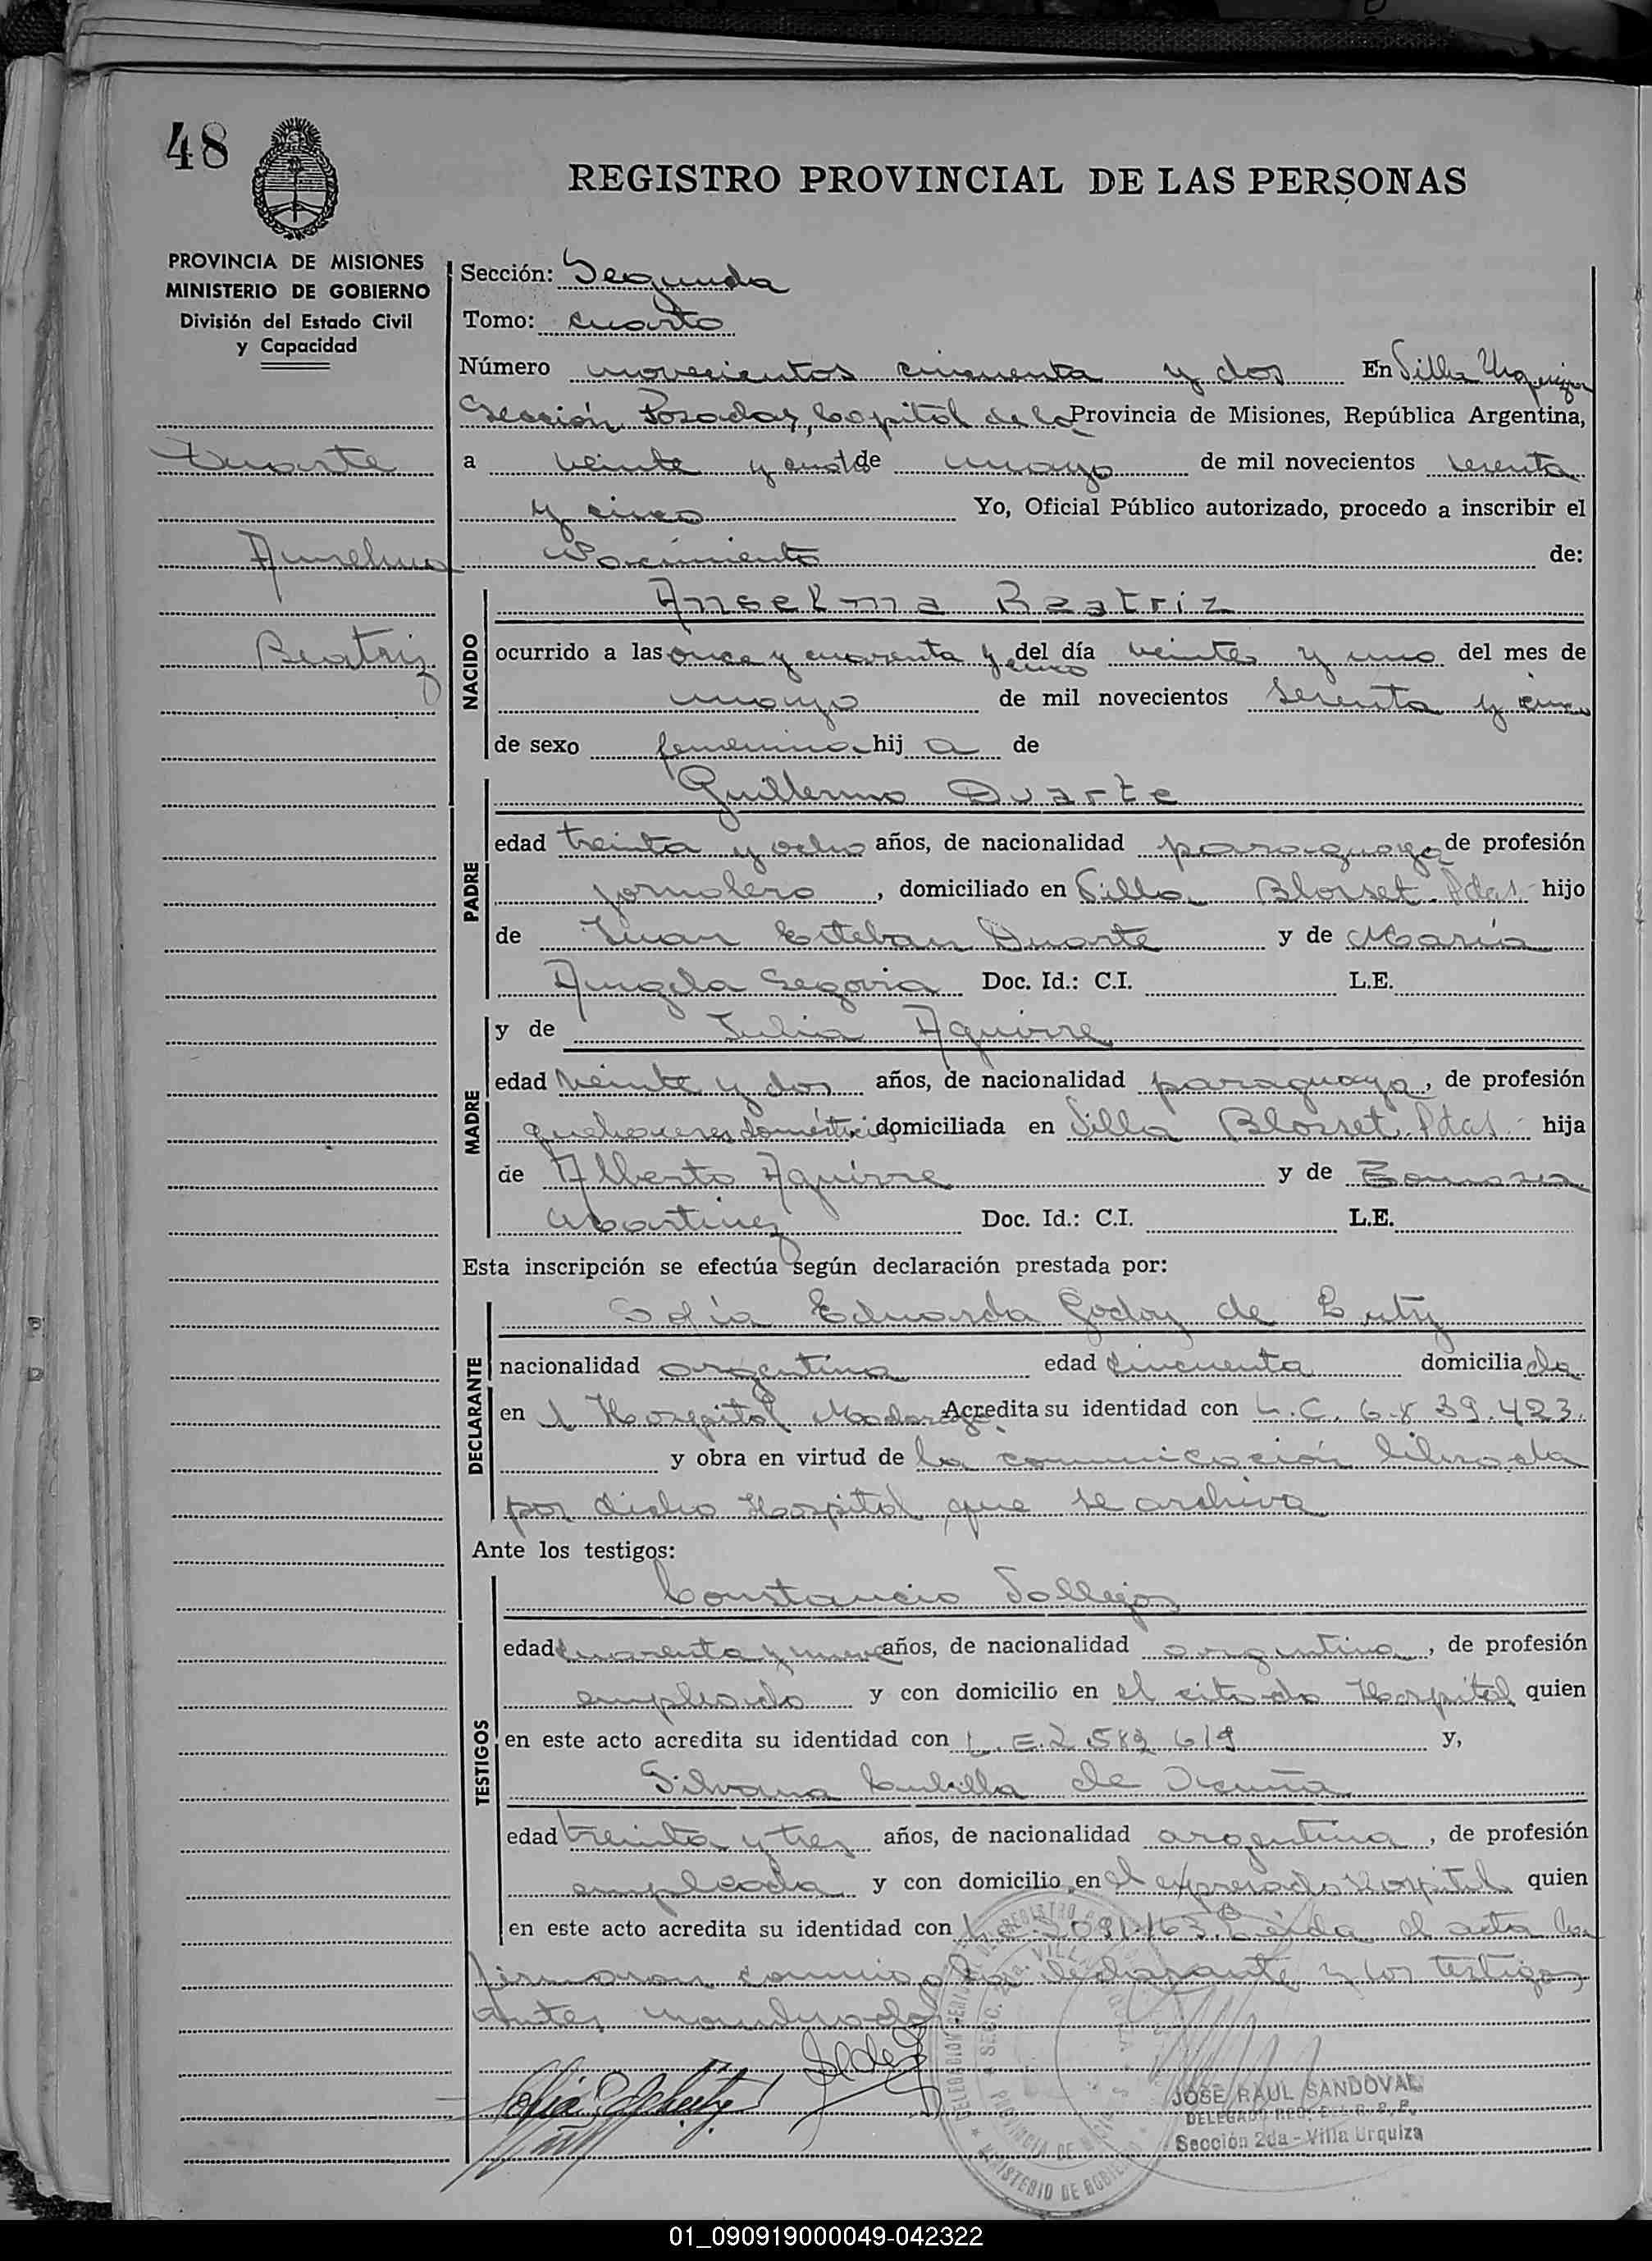 48
REGISTRO PROVINCIAL DE LAS PERSONAS
PROVINCIA DE MISIONES
MINISTERIO DE GOBIERNO
División del Estado Civil
y Capacidad
Duarte
Anselma
Beatriz
Sección: Segunda
Tomo: cuarto
Número novecientos cincuenta y dos En Villa Urquiza
Sección Posadas, Capital de la Provincia de Misiones, República Argentina,
a veinte y cuat de mayo de mil novecientos sesenta
y cinco Yo, Oficial Público autorizado, procedo a inscribir el
Nacimiento de:
NACIDO
Anselma Beatriz
ocurrido a las once y cuarenta y cinco del día veinte y uno del mes de
mayo de mil novecientos sesenta y cinco
de sexo femenino hij a de
PADRE
Guillermo Duarte
edad treinta y ocho años, de nacionalidad paraguaya de profesión
jornalero, domiciliado en Villa Blosset. Pdas. hijo
de Juan Esteban Duarte y de María
Angela Segovia Doc. Id.: C.I. L.E.
MADRE
y de Julia Aguirre
edad veinte y dos años, de nacionalidad paraguaya, de profesión
quehaceres domésticos domiciliada en Villa Blosset. Pdas. hija
de Alberto Aguirre y de
Martinez Doc. Id.: C.I. L.E.
Esta inscripción se efectúa según declaración prestada por:
DECLARANTE
Sofía Eduarda Godoy de
nacionalidad argentina edad cincuenta domicilia da
en l Hospital Madariaga. Acredita su identidad con L.C. 6.839.423.
y obra en virtud de la comunicación librada
por dicho Hospital que se archiva
Ante los testigos:
TESTIGOS
Constancio Vallejos
edad cuarenta y nueve años, de nacionalidad argentina, de profesión
empleado y con domicilio en el citado Hospital quien
en este acto acredita su identidad con L.E. 2.582.619 y,
Silvana Cubilla de Acuña
edad treinta y tres años, de nacionalidad argentina, de profesión
empleada y con domicilio en el expresado Hospital quien
en este acto acredita su identidad con L.C. 2.091.163. Leída el acta la
firmaron conmigo la declarante y los testigos
antes nombrados.
JOSE RAUL SANDOVAL
Sección 2da - Villa Urquiza
MINISTERIO DE GOBIERNO
01_090919000049-042322